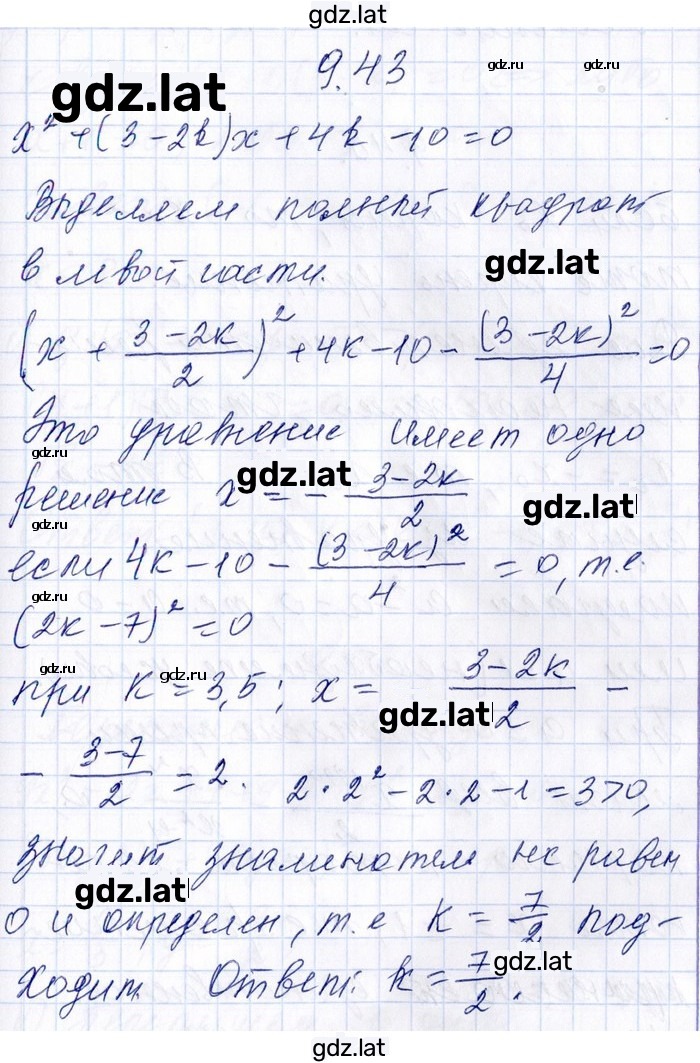 gdz.lat
9.43
gdz.ru
gdz.ru
gdz.lat
x² + (3 − 2k)x + 4k − 10 = 0
Выделяем полный квадрат
в левой части.
gdz.lat
(x + (3 − 2k)/2)² + 4k − 10 − (3 − 2k)²/4 = 0
Это уравнение имеет одно
gdz.ru
gdz.lat
решение x = − (3 − 2k)/2
gdz.lat
gdz.ru
если 4k − 10 − (3 − 2k)²/4 = 0, т.е.
gdz.ru
(2k − 7)² = 0
gdz.ru
gdz.ru
при k = 3,5; x = (3 − 2k)/2 −
gdz.lat
− (3 − 7)/2 = 2. 2 · 2² − 2 · 2 − 1 = 3 > 0,
значит знаминатель не равен
gdz.lat
0 и определен, т.е k = 7/2 под-
gdz.lat
ходит. Ответ: k = 7/2.
gdz.lat